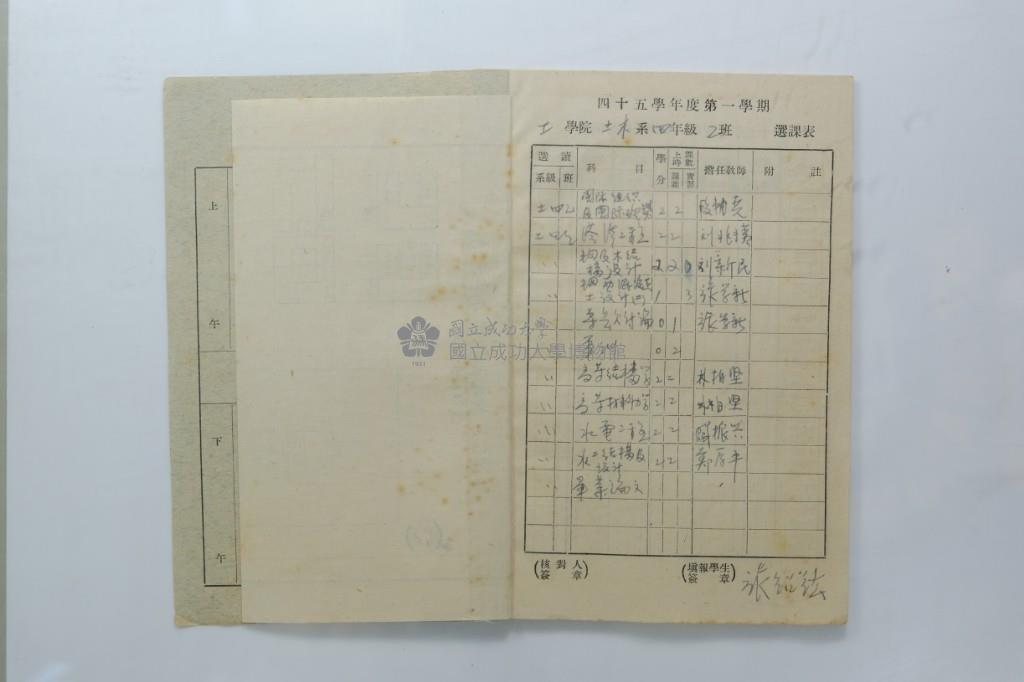 上
午
下
午
四十五學年度第一學期
工 學院 土木 系 四 年級 乙 班 選課表
選讀 科目 學分 上課時數 擔任教師 附註
系級 班 講演 實習
土四 乙 國際組織及國際現勢 2 2
土四 乙 港灣工程 2 2 刘兆璸
〃 鋼及木結構設計 2 2 0 刘新民
〃 1 3 張學新
專員討論 0 1 張學新
0 2
〃 高等結構學 2 2 林柏堅
〃 高等材料力學 2 2 林柏堅
〃 水電工程 2 2 振興
〃 水工結構及設計 2 2 鄭厚平
〃 畢業論文
(核對人簽章)
(填報學生簽章) 張紹
1931
國立成功大學
國立成功大學博物館